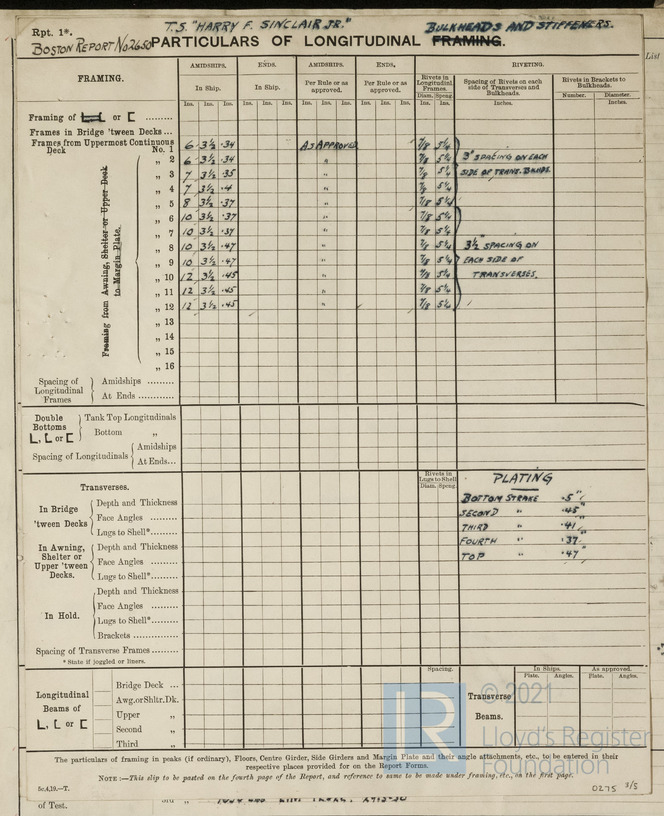 T.S. "HARRY F. SINCLAIR JR."
BULKHEADS AND STIFFENERS.
Rpt. 1*.
BOSTON REPORT No 2650
PARTICULARS OF LONGITUDINAL FRAMING.
FRAMING. AMIDSHIPS. ENDS. AMIDSHIPS. ENDS, RIVETING.
In Ship. In Ship. Per Rule or as approved. Per Rule or as approved. Rivets in Longitudinal Frames Spacing of Rivets on each side of Transverses and Bulkheads. Rivets in Brackets to Bulkheads.
Diam. Speng. Number. Diameter.
Ins. Ins. Ins. Ins. Ins. Ins. Ins. Ins. Ins. Ins. Ins. Ins. Ins. Ins. Inches. Inches.
Framing of L or [
Frames in Bridge 'tween Decks ...
Frames from Uppermost Continuous Deck
Framing from Awning, Shelter or Upper Deck to Margin Plate.
No. 1 6 3½ .34 AS APPROVED 7/8 5¼
„ 2 6 3½ .34 „ 7/8 5¼ 3" SPACING ON EACH
„ 3 7 3½ .35 „ 7/8 5¼ SIDE OF TRANS. BHDS.
„ 4 7 3½ .4 „ 7/8 5¼
„ 5 8 3½ .37 „ 7/8 5¼
„ 6 10 3½ .37 „ 7/8 5¼
„ 7 10 3½ .37 „ 7/8 5¼
„ 8 10 3½ .47 „ 7/8 5¼ 3½" SPACING ON
„ 9 10 3½ .47 „ 7/8 5¼ EACH SIDE OF
„ 10 12 3½ .45 „ 7/8 5¼ TRANSVERSES.
„ 11 12 3½ .45 „ 7/8 5¼
„ 12 12 3½ .45 „ 7/8 5¼
„ 13
„ 14
„ 15
„ 16
Spacing of Longitudinal Frames
Amidships .........
At Ends ............
Double Bottoms L, [ or [
Tank Top Longitudinals
Bottom „
Spacing of Longitudinals
Amidships
At Ends...
Transverses.
Rivets in Lugs to Shell
Diam. Speng.
PLATING
In Bridge 'tween Decks
Depth and Thickness BOTTOM STRAKE .5"
Face Angles ......... SECOND „ .45"
Lugs to Shell*........ THIRD „ .41"
In Awning, Shelter or Upper 'tween Decks.
Depth and Thickness FOURTH „ .37"
Face Angles ......... TOP „ .47"
Lugs to Shell*........
In Hold.
Depth and Thickness
Face Angles .........
Lugs to Shell*........
Brackets ...............
Spacing of Transverse Frames.........
* State if joggled or liners.
Spacing. In Ships. As approved.
Plate. Angles. Plate. Angles.
Longitudinal Beams of L, [ or [
Bridge Deck ...
Awg.orShltr.Dk.
Upper „
Second „
Third „
Transverse Beams.
© 2021
Lloyd's Register
Foundation
The particulars of framing in peaks (if ordinary), Floors, Centre Girder, Side Girders and Margin Plate and their angle attachments, etc., to be entered in their
respective places provided for on the Report Forms.
NOTE :—This slip to be pasted on the fourth page of the Report, and reference to same to be made under framing, etc., on the first page.
5c,4,19.—T.
0275 3/5
of Test.
List